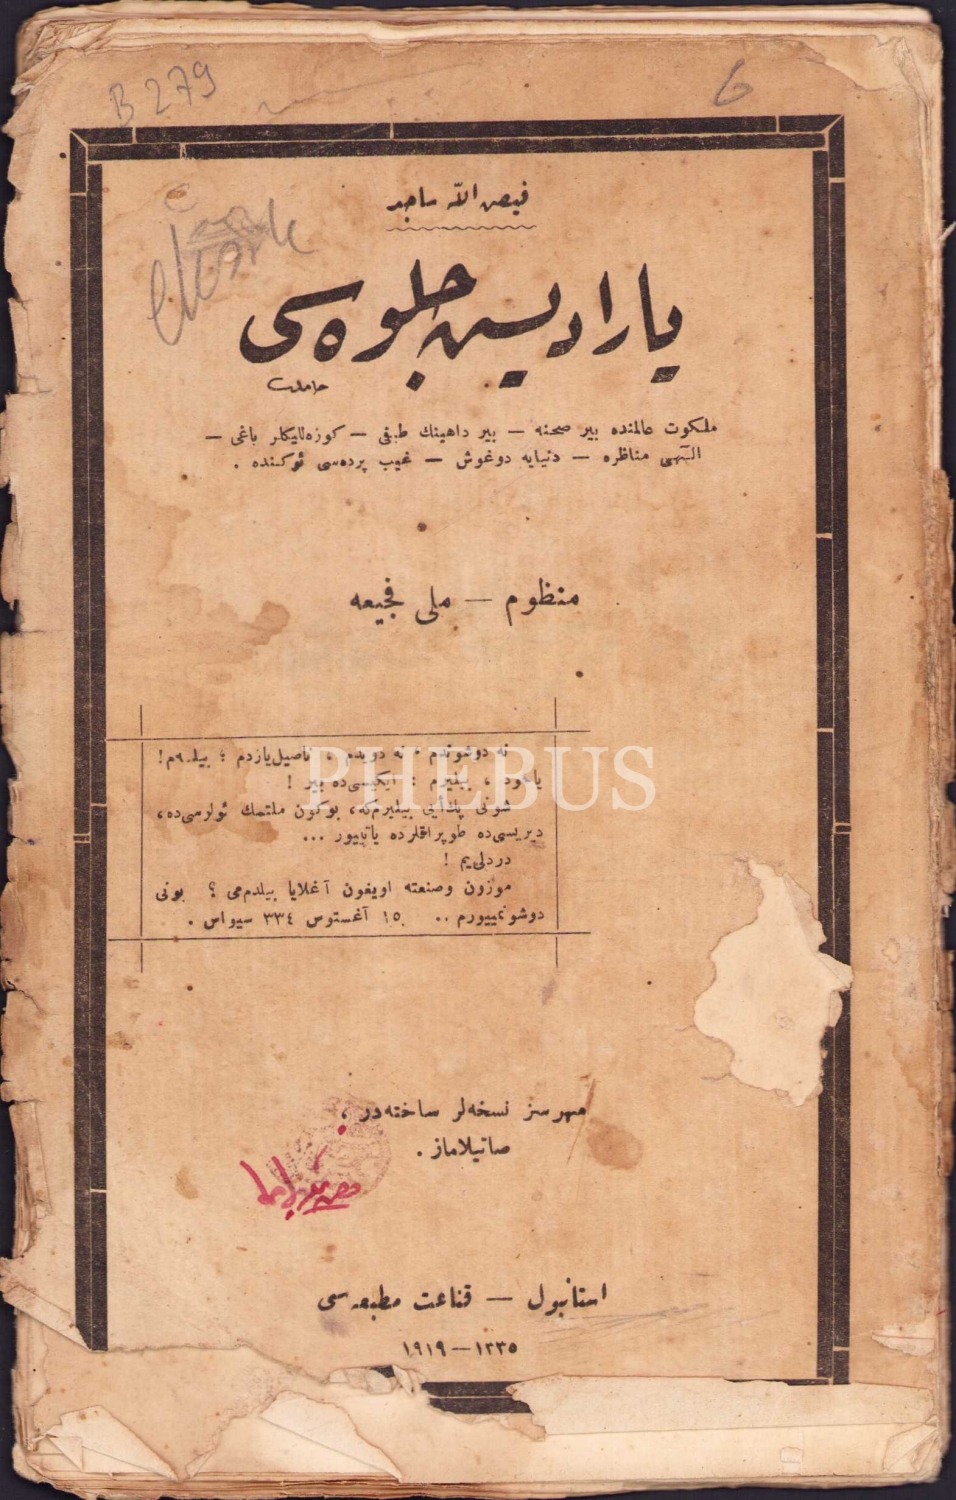 B 279
6
فيض الله ساجد
يارادیس جلوه‌سی
ملكوت عالمنده بير صحنه — بير داهينك طيفی — كوزه‌للیكلر باغی —
الـٓهی مناظره — دنیایه دوغوش — غیب پرده‌سی ئوكنده .
منظوم — ملی فجیعه
نه دوشوندم ، نه دویدم ، ناصیل یازدم ؛ بیلـ‌ه‌م !
یاخود ، بیلیرم : ایكیسی‌ده بیر !
شونی پك‌اٖیی بیلیرم‌كه ، بوكون ملتمك ئولرسی‌ده ،
دیریسی‌ده طوپراقلرده یاتییور ...
دردلی‌یم !
موزون وصنعته اویغون آغلایا بیلدم‌می ؟ بونی
دوشونمییورم .. ١٥ آغستوس ٣٣٤ سیواس .
PHEBUS
مهرسز نسخه‌لر ساخته‌در ،
صاتیلاماز .
استانبول — قناعت مطبعه‌سی
١٣٣٥—١٩١٩